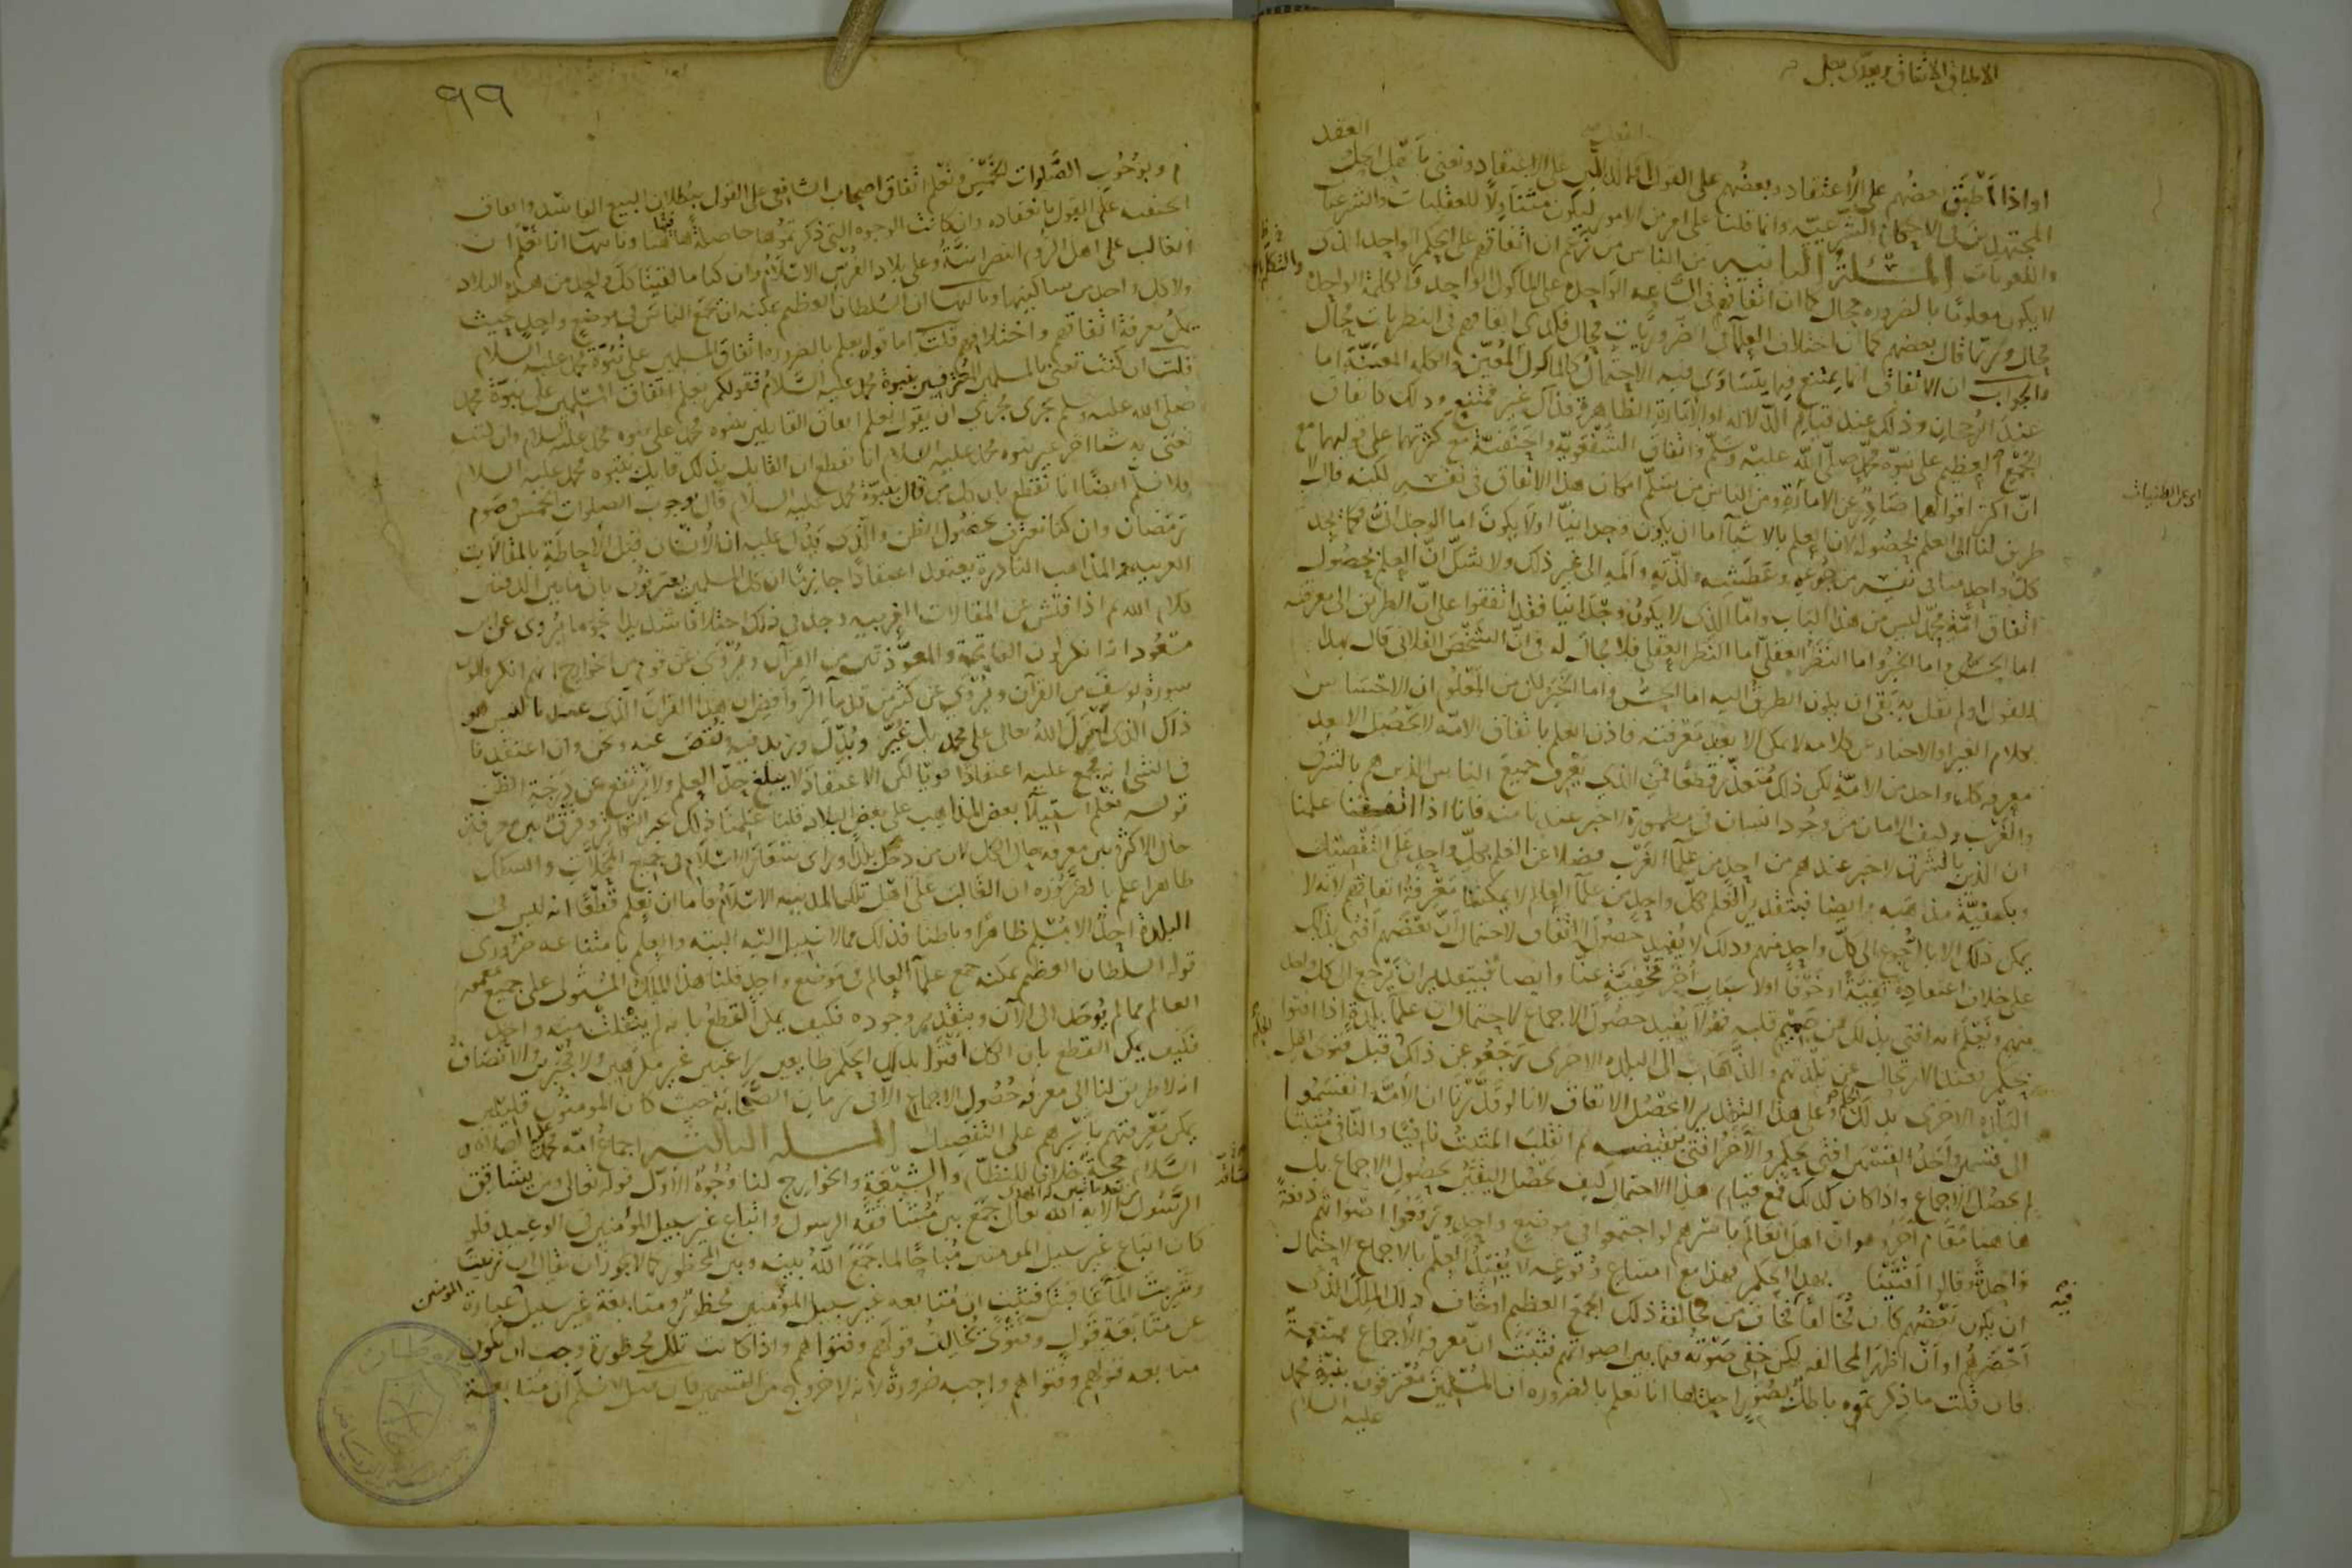 او اذا اطبق بعضهم على الاعتقاد وبعضهم على القول الدالين على الاعتقاد ونعنى باهل الحل
العقد
المجتهدين فى الاحكام الشرعيّة وانما قلنا على امر من الامور ليكون متناولا للعقليات والشرعيات
واللغويات المسئلة الثانيه من الناس من زعم ان اتفاقهم على الحكم الواحد الذى
لا يكون معلوما بالضروره محال كما ان اتفاقهم فى الساعه الواحدة على الماكول الواحد والكلمة الواحدة
محال وربّما قال بعضهم كما ان اختلاف العلمآ فى الضروريات محال فكذى اتفاقهم فى النظريات محال
والجواب ان الاتفاق انما يمتنع فيما يتساوى فيه الاحتمال كالماكول المعيّن والكلمه المعيّنة اما
عند الرجحان وذلك عند قيام الدلاله او الامارة الظاهرة فذاك غير ممتنع وذلك كاتفاق
الجمع العظيم على نبوّة محمد صلى الله عليه وسلم واتفاق الشفعويّة والحنفيّة مع كثرتهما على قوليهما مع
انّ اكثر اقوالهما صادر عن الامارة ومن الناس من سلم امكان هذا الاتفاق فى نفسه لكنه قال لا
طريق لنا الى العلم بحصوله لان العلم بالاشيآ اما ان يكون وجدانيّا او لا يكون اما الوجدانىّ فكما يجد
كلّ واحد منا فى نفسه من جوعه وعطشه ولذّته وألمه الى غير ذلك ولا شكّ انّ العلم بحصول
اتفاق أمّة محمّد ليس من هذا الباب وامّا الذى لا يكون وجدانيا فقد اتفقوا على انّ الطريق الى معرفته
اما الحسّ واما الخبر واما النظر العقلىّ اما النظر العقلى فلا مجال له فى انّ الشخص الفلانى قال بهذا
القول او لم يقل به بقى ان يكون الطريق اليه اما الحسّ واما الخبر لكن من المعلوم ان الاحساس
بكلام الغير او الاخبار عن كلامه لا يمكن الا بعد معرفته فاذن العلم باتفاق الامّه لا يحصل الا بعد
معرفه كل واحد من الامّة لكن ذلك متعذّر قطعًا فمن الذى يعرف جميع الناس الذين هم بالشرق
والغرب وكيف الامان من وجود انسان فى مطمورة لا خبر عندنا منه فانا اذا انصفنا علمنا
ان الذين بالشرق لا خبر عندهم من احد من علمآ الغرب فضلا عن العلم بكلّ واحد على التفصيل
وبكيفيّة مذاهبه وايضا فبتقدير العلم بكلّ واحد من علمآ العالم لا يمكننا معرفة اتفاقهم لانه لا
يمكن ذلك الا بالرجوع الى كلّ واحد منهم وذلك لا يفيد حصول الاتفاق لاحتمال انّ بعضهم افتى بذلك
على خلاف اعتقاده تقيّة او خوفًا او لاسباب اخر مخفيّة عنّا وايضا فبتقدير ان نرجع الى كل واحد
منهم ونعلم انه افتى بذلك من صميم قلبه فهو لا يفيد حصول الاجماع لاحتمال ان علمآ بلدة اذا افتوا
بحكم فعند الارتحال عن بلدتهم والذهاب الى البلده الاخرى رجعوا عن ذلك قبل فتوى اهل
البلده الاخرى بذلك وعلى هذا التقدير لا يحصل الاتفاق لانا لو قدّرنا ان الامّه انقسموا
الى قسمين واحد القسمين افتى بحكم والآخر افتى بنقيضه ثم انقلب المثبت نافيًا والنافى مثبتًا
لم يحصل الاجماع واذا كان كذلك فمع قيام هذا الاحتمال كيف يحصل اليقين بحصول الاجماع بل
هاهنا مقام آخر وهو انّ اهل العالم باسرهم لو اجتمعوا فى موضع واحد ورفعوا اصواتهم دفعةً
واحدة وقالوا افتينا بهذا الحكم فهذا مع امتناع وقوعه لا يفيد العلم بالاجماع لاحتمال
ان يكون بعضهم كان مخالفا فخاف من مخالفة ذلك الجمع العظيم او خاف ذلك الملك الذى
احضرهم او انّ اظهر المخالفه لكن خفى صوته فيما بين اصواتهم فثبت انّ معرفة الاجماع ممتنعة
فان قلت ما ذكرتموه باطل بصور احدها انا نعلم بالضروره ان المسلمين معترفون بنبوّة محمد
عليه السلام
اى على الظنيات
فيه
٩٩
وبوجوب الصّلوات الخمس ونعلم اتفاق اصحاب الشافعى على القول ببطلان البيع الفاسد واتفاق
الحنفيه على القول بانعقاده وان كانت الوجوه التى ذكرتموها حاصلة هاهنا وثانيها انا نعلم ان
الغالب على اهل الروم النصرانيّة وعلى بلاد الفرس الاسلام وان كنا ما لقينا كلّ واحد من هذه البلاد
ولا كل واحد من ساكنيها وثالثها ان السلطان العظيم يمكنه ان يجمع الناس فى موضع واحد بحيث
يمكن معرفة اتفاقهم واختلافهم قلت اما قوله يعلم بالضروره اتفاق المسلمين على نبوّة محمد عليه السلام
قلت ان كنت تعنى بالمسلمين المعترفين بنبوة محمد عليه السّلام فقولكم يعلم اتفاق المسلمين على نبوّة محمد
صلى الله عليه وسلم يجرى مجرى ان يقول نعلم اتفاق القايلين بنبوه محمد على نبوه محمد عليه السلام وان كنت
تعنى به شيا اخر غير نبوه محمد عليه السلام انا نقطع ان القايل بذلك قايل بنبوه محمد عليه السلام
فلا نسلّم ايضا انا نقطع بان كل من قال بنبوّة محمد عليه السلام قال بوجوب الصلوات الخمس وصوم
رمضان وان كنا نعترف بحصول الظن والّذى يدلّ عليه ان الانسان قبل الاحاطة بالمقالات
الغريبه والمذاهب النادرة يعتقد اعتقادًا جازمًا ان كل المسلمين يعترفون بان ما بين الدفتين
كلام الله ثم اذا فتّش عن المقالات الغريبه وجد فى ذلك اختلافا شديدا نحو ما يروى عن ابن
مسعود انه انكر كون الفاتحة والمعوّذتين من القرآن ويروى عن قوم من الخوارج انهم انكروا كون
سورة يوسف من القرآن ويروى عن كثير من قدمآ الروافض ان هذا القرآن الذى عندنا ليس هو
ذاك الذى انزل الله تعالى على محمد بل غيّر وبدّل وزيد فيه ونقص عنه ونحن وان اعتقدنا
فى الشى انه مجمع عليه اعتقادًا قويًا لكن الاعتقاد لا يبلغ حدّ العلم ولا يرتفع عن درجة الظّن
قوله نعلم استيلآ بعض المذاهب على بعض البلاد قلنا علمنا ذلك عبر التواتر وفرق بين معرفة
حال الاكثر وبين معرفه حال الكل لان من دخل بلدا وراى شعار الاسلام فى جميع المحلات والسكك
ظاهرا علم بالضّروره ان الغالب على اهل تلك المدينه الاسلام فاما ان نعلم قطعًا انه ليس فى
البلدة احدٌ الا مسلم ظاهرًا وباطنا فذلك مما لا سبيل اليه البته والعلم بامتناعه ضرورى
قوله السلطان العظيم يمكنه جمع علمآ العالم فى موضع واحد قلنا هذا الملك المستولى على جميع معموره
العالم مما لم يوجد الى الآن وبتقدير وجوده فكيف يمكن القطع بانه لم ينفلت منه واحد
فكيف يمكن القطع بان الكل افتوا بذلك الحكم طايعين راغبين غير مكرهين ولا مجبرين والانصاف
انه لا طريق لنا الى معرفه حصول الاجماع الّا فى زمان الصّحابه حيث كان المومنون قليلين
يمكن معرفتهم باسرهم على التفصيل المسله الثالثه اجماع امّه محمد عليه الصلاة و
السّلام حجةٌ خلافا للنظّام والشيعة والخوارج لنا وجوه الاوّل قوله تعالى ومن يشاقق
الرّسول من بعد ما تبين له الهدى الايه الله تعالى جمع بين مشاققه الرسول واتباع غير سبيل المؤمنين فى الوعيد فلو
كان اتباع غير سبيل المومنين مباحًا لما جمع الله بينه وبين المحظور كما لا يجوز ان يقال ان زنيت
وشربت المآء عاقبتك فثبت ان متابعه غير سبيل المؤمنين محظورة ومتابعة غير سبيل المومنين عبارة
عن متابعة قول وفتوى تخالف قولهم وفتواهم واذا كانت تلك محظورة وجب ان تكون
متابعه قولهم وفتواهم واجبه ضرورة لانه لا خروج من القسمين فان قيل لا نسلّم ان متابعة